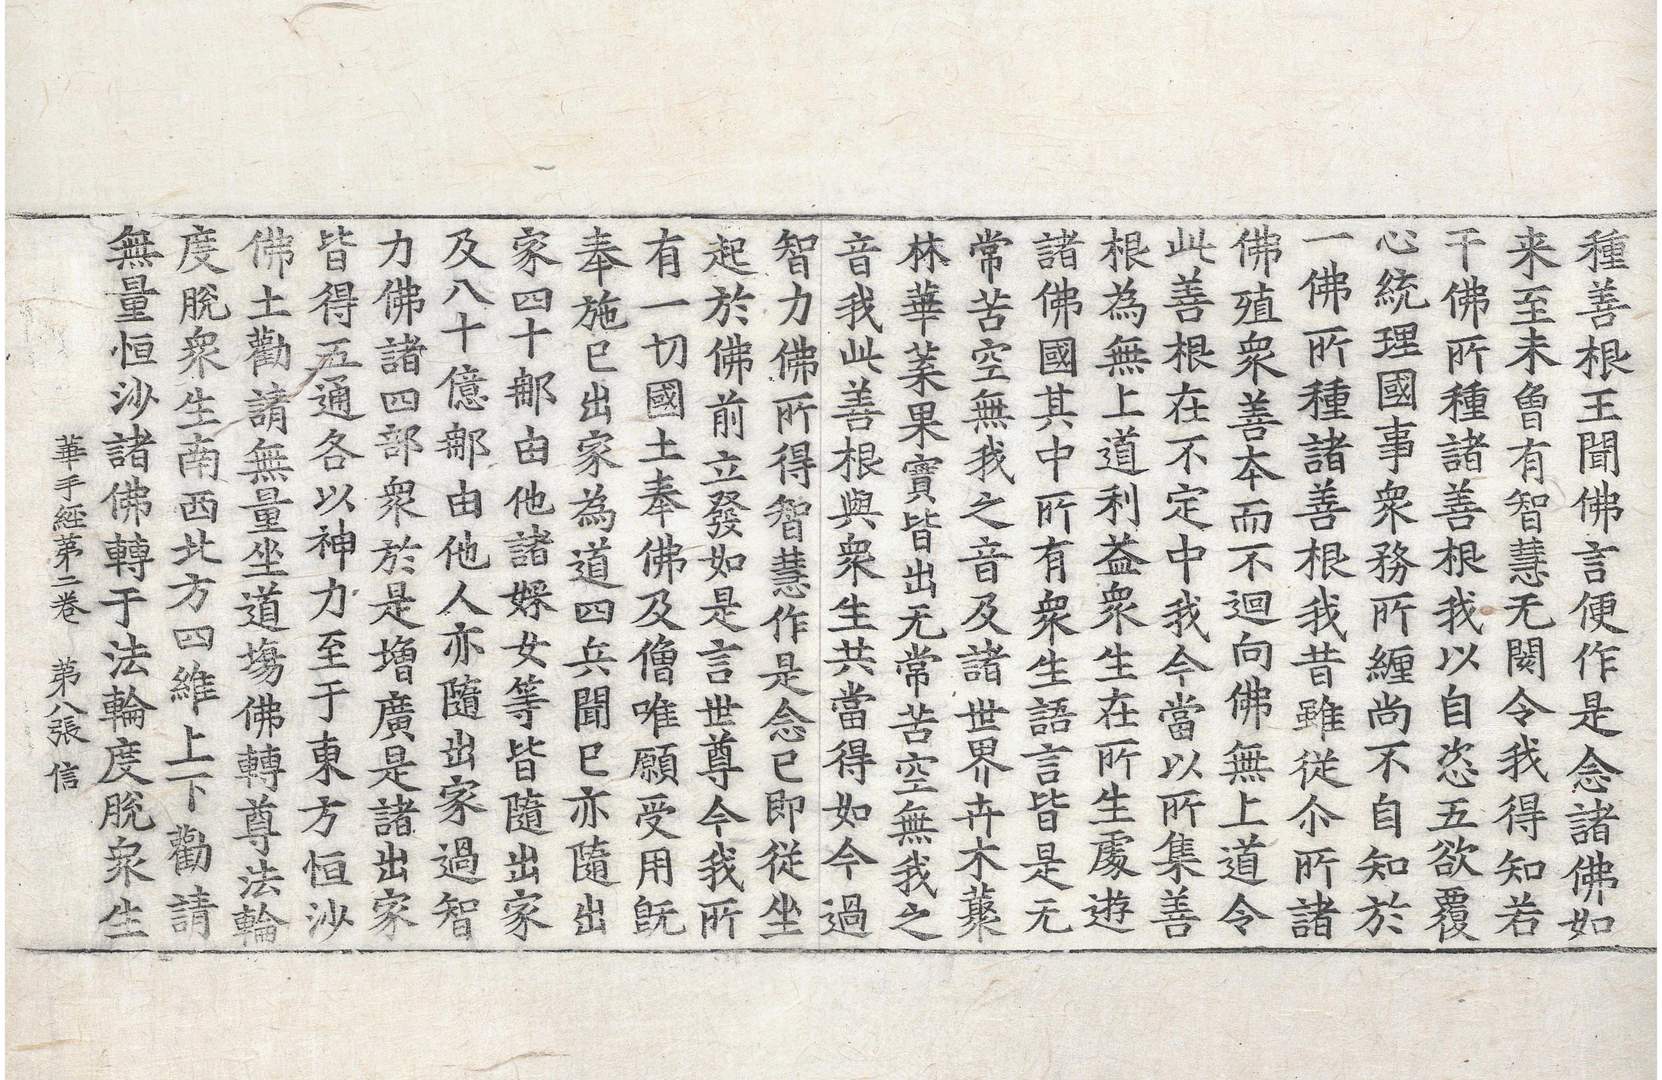 種善根王聞佛言便作是念諸佛如
来至未曾有智慧无閡令我得知若
干佛所種諸善根我以自恣五欲覆
心統理國事衆務所纏尚不自知於
一佛所種諸善根我昔雖從尒所諸
佛殖衆善本而不迴向佛無上道令
此善根在不定中我今當以所集善
根為無上道利益衆生在所生處遊
諸佛國其中所有衆生語言皆是无
常苦空無我之音及諸世界卉木藂
林華菓果實皆出无常苦空無我之
音我此善根與衆生共當得如今過
智力佛所得智慧作是念已即從坐
起於佛前立發如是言世尊今我所
有一切國土奉佛及僧唯願受用旣
奉施已出家為道四兵聞已亦隨出
家四十郍由他諸婇女等皆隨出家
及八十億郍由他人亦隨出家過智
力佛諸四部衆於是增廣是諸出家
皆得五通各以神力至于東方恒沙
佛土勸請無量坐道塲佛轉尊法輪
度脫衆生南西北方四維上下勸請
無量恒沙諸佛轉于法輪度脫衆生
華手經第二卷　第八張　信